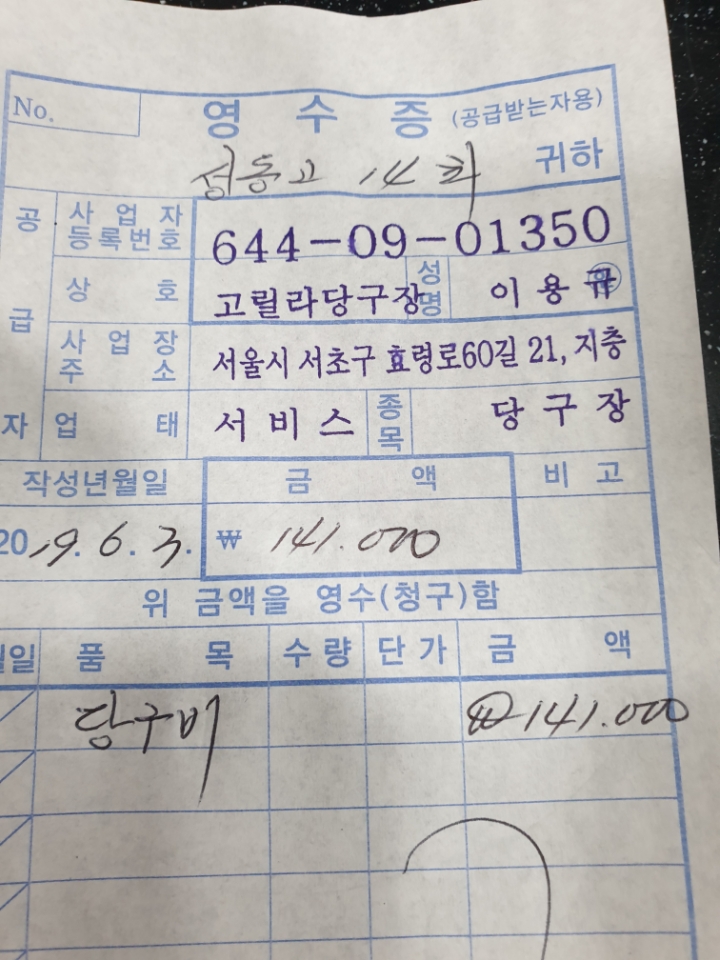 No.
영 수 증 (공급받는자용)
성동고 14회 귀하
공 급 자
사 업 자 등록번호 644-09-01350
상 호 고릴라당구장 성명 이용규
사 업 장 주 소 서울시 서초구 효령로60길 21, 지층
업 태 서비스 종목 당구장
작성년월일 금 액 비 고
2019. 6. 3. ₩ 141.000
위 금액을 영수(청구)함
월일 품 목 수량 단가 금 액
당구비 ₩141.000